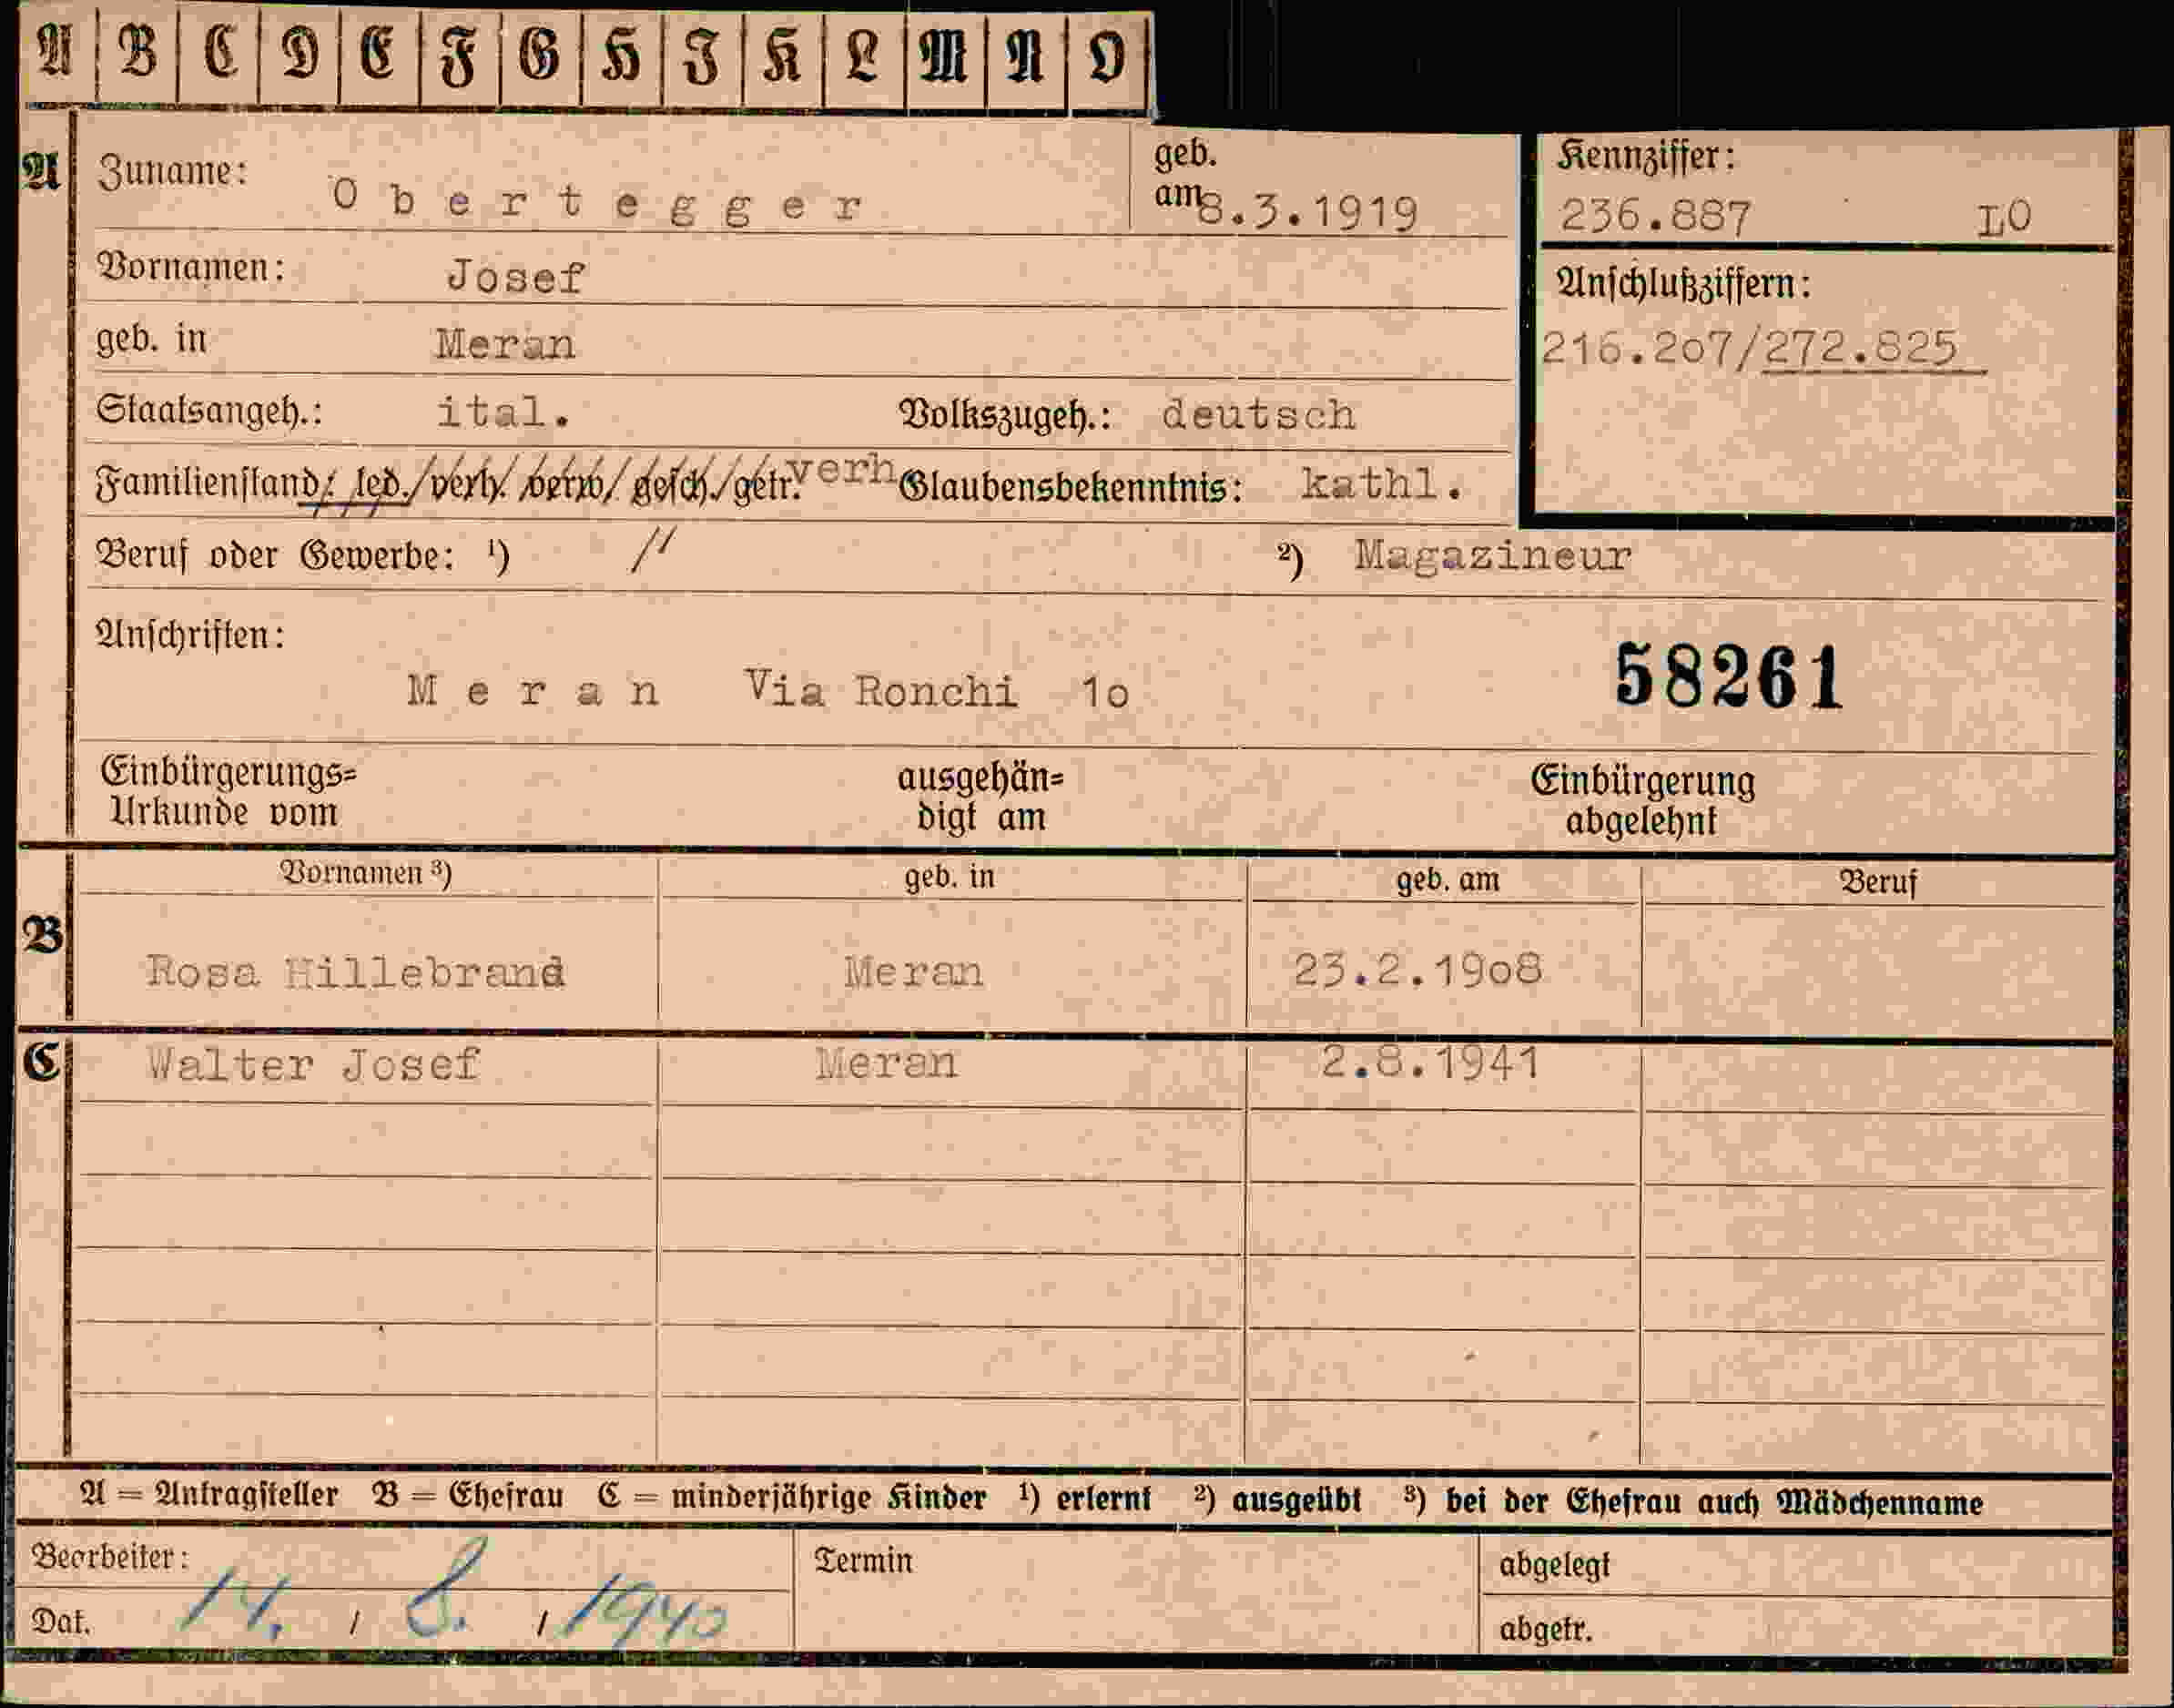 A B C D E F G H I K L M N O
A Zuname: Obertegger geb. am 8.3.1919
Kennziffer:
236.887 LO
Vornamen: Josef
Anschlußziffern:
216.2o7/272.825
geb. in Meran
Staatsangeh.: ital. Volkszugeh.: deutsch
Familienstand: led./verh./verw./gesch./getr. verh Glaubensbekenntnis: kathl.
Beruf oder Gewerbe: ¹) // ²) Magazineur
Anschriften:
Meran Via Ronchi 1o
58261
Einbürgerungs=
Urkunde vom
ausgehän=
digt am
Einbürgerung
abgelehnt
Vornamen ³) geb. in geb. am Beruf
B Rosa Hillebrand Meran 23.2.19o8
C Walter Josef Meran 2.8.1941
A = Antragsteller B = Ehefrau C = minderjährige Kinder ¹) erlernt ²) ausgeübt ³) bei der Ehefrau auch Mädchenname
Bearbeiter: Termin abgelegt
Dat. 14. / 8. / 1940 abgetr.